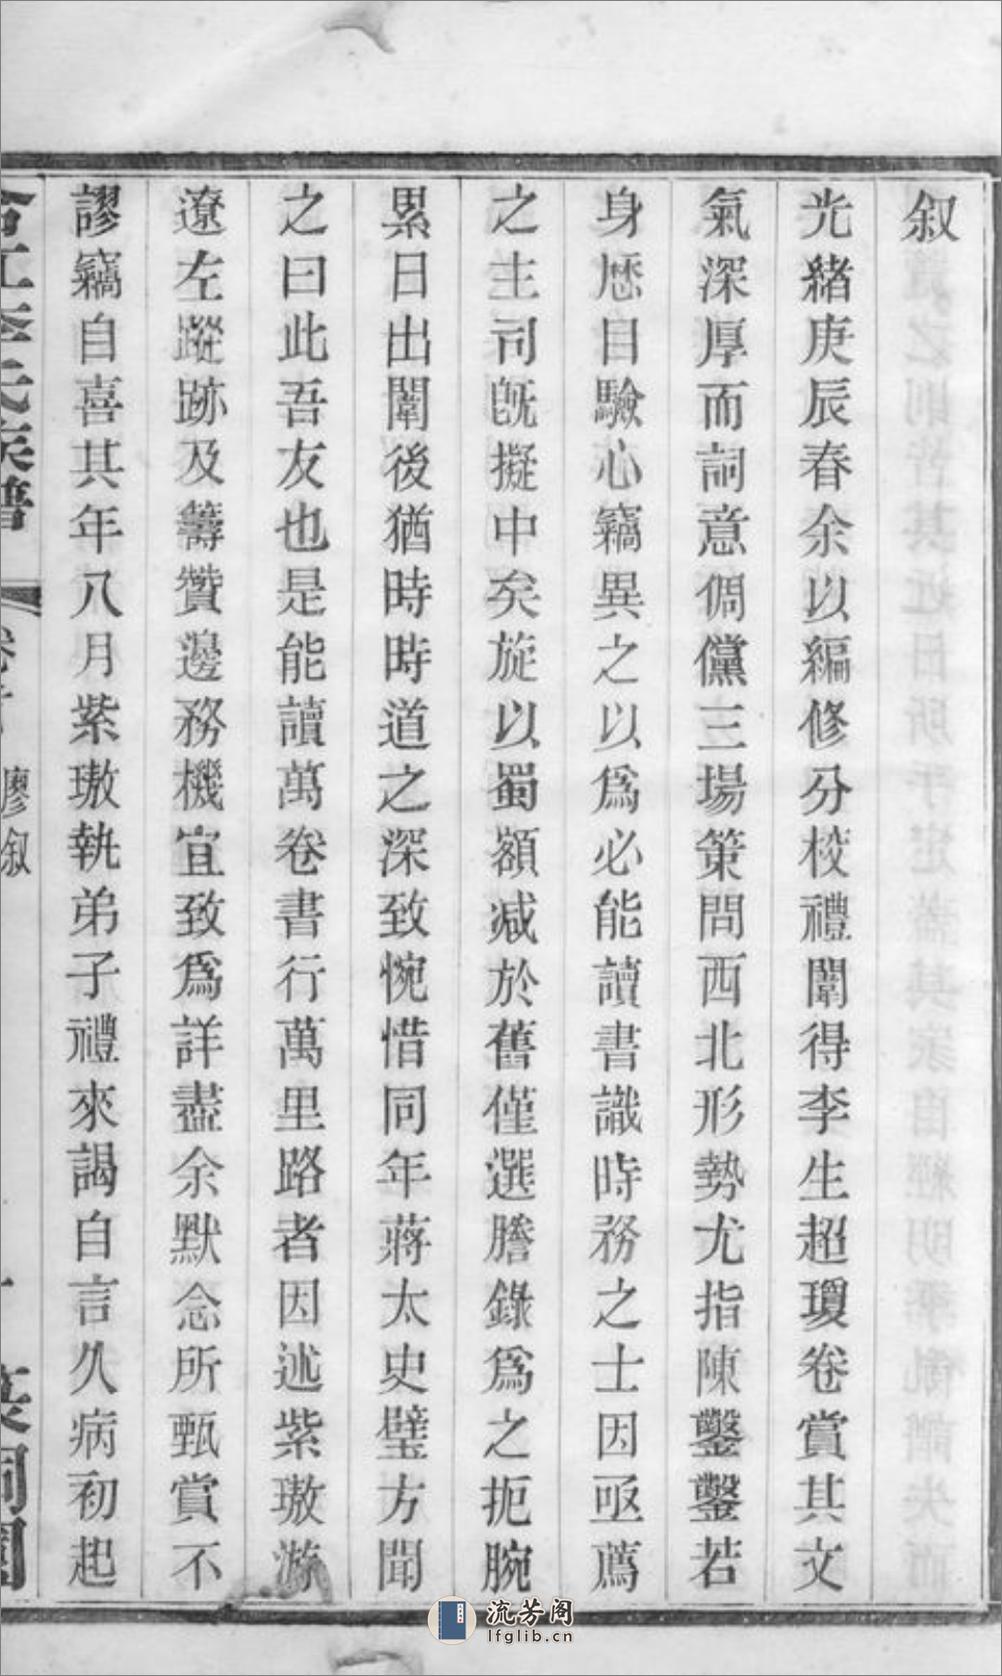 叙
光緒庚辰春余以編修分校禮闈得李生超瓊卷賞其文
氣深厚而詞意倜儻三場策問西北形勢尤指陳鑿鑿若
身歷目驗心竊異之以爲必能讀書識時務之士因亟薦
之主司旣擬中矣旋以蜀額減於舊僅選謄錄爲之扼腕
累日出闈後猶時時道之深致惋惜同年蔣太史璧方聞
之曰此吾友也是能讀萬卷書行萬里路者因述紫璈游
遼左蹤跡及籌贊邊務機宜致爲詳盡余默念所甄賞不
謬竊自喜其年八月紫璈執弟子禮來謁自言久病初起
合江李氏族譜
廖叙
流芳阁
lfglib.cn